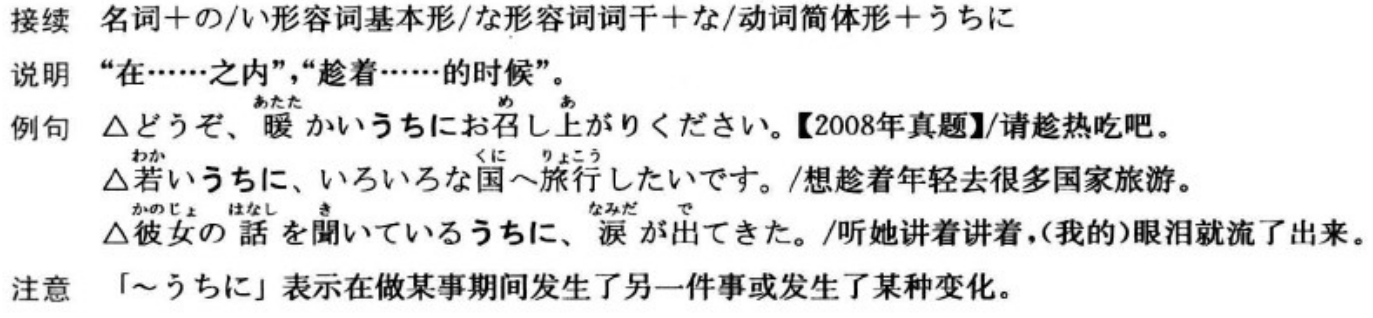 接续 名词＋の/い形容词基本形/な形容词词干＋な/动词简体形＋うちに
说明 “在……之内”,“趁着……的时候”。
あたた め あ
例句 △どうぞ、暖かいうちにお召し上がりください。【2008年真题】/请趁热吃吧。
わか くに りょこう
△若いうちに、いろいろな国へ旅行したいです。/想趁着年轻去很多国家旅游。
かのじょ はなし き なみだ で
△彼女の話を聞いているうちに、涙が出てきた。/听她讲着讲着,(我的)眼泪就流了出来。
注意 「～うちに」表示在做某事期间发生了另一件事或发生了某种变化。